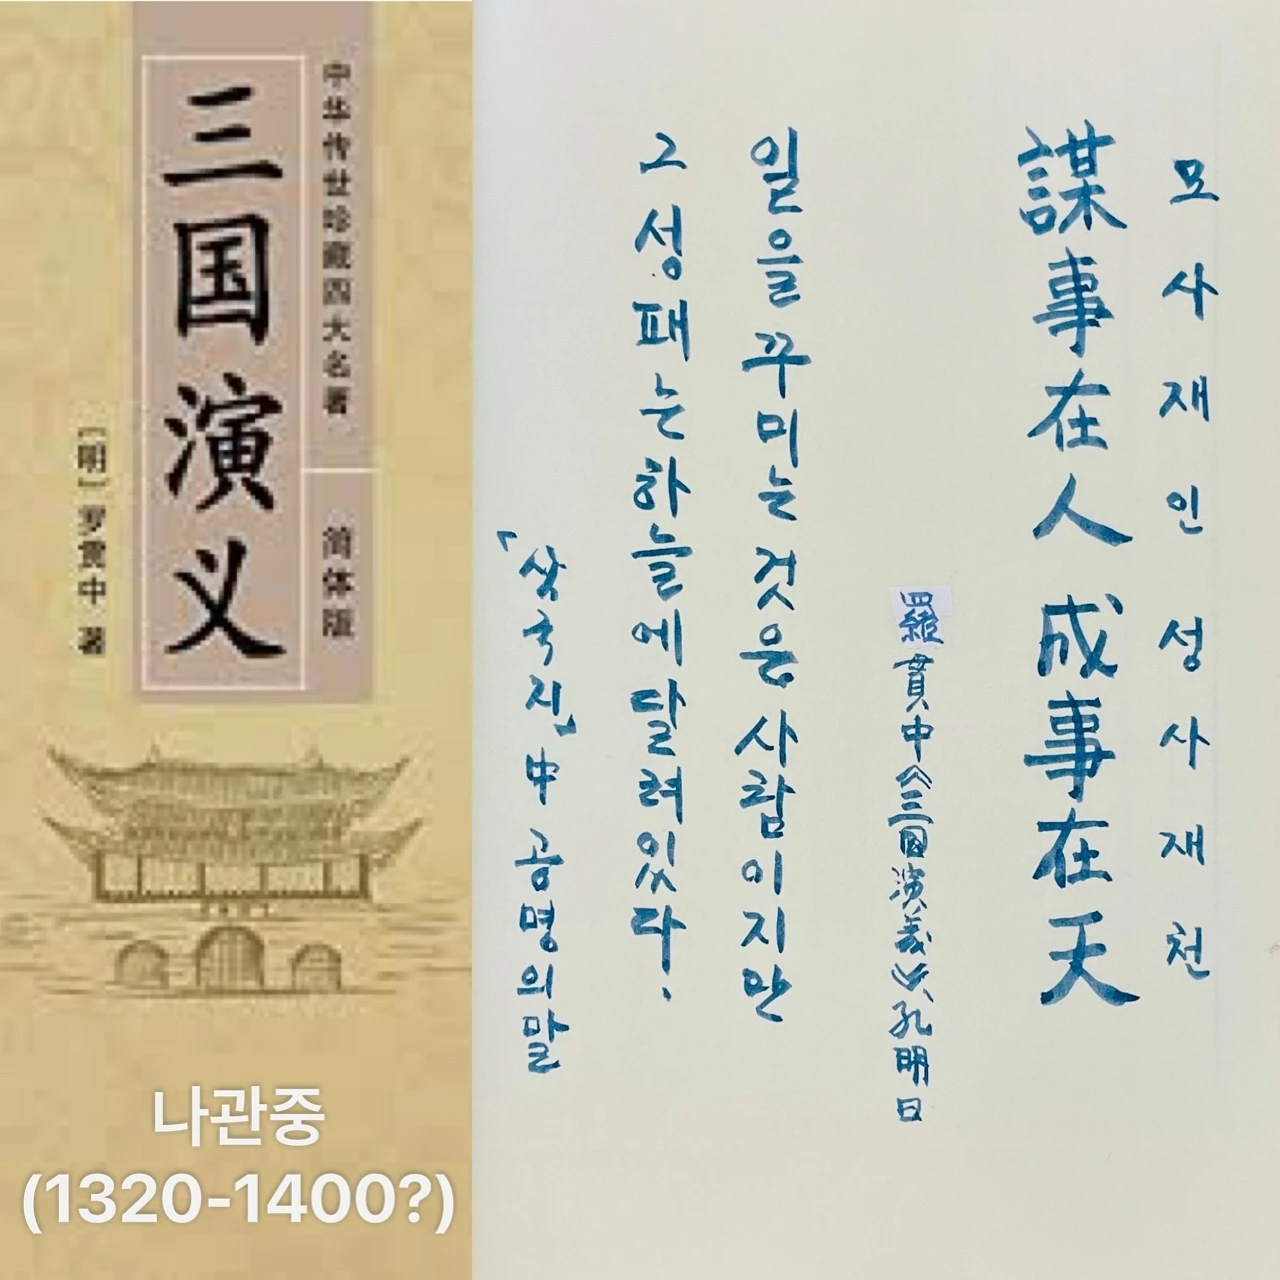 中华传世珍藏四大名著
简体版
三国演义
[明]罗贯中 著
나관중
(1320-1400?)
모사재인성사재천
謀事在人 成事在天
羅貫中《三國演義》孔明曰
일을꾸미는것은사람이지만
그성패는하늘에달려있다.
「삼국지」中 공명의말